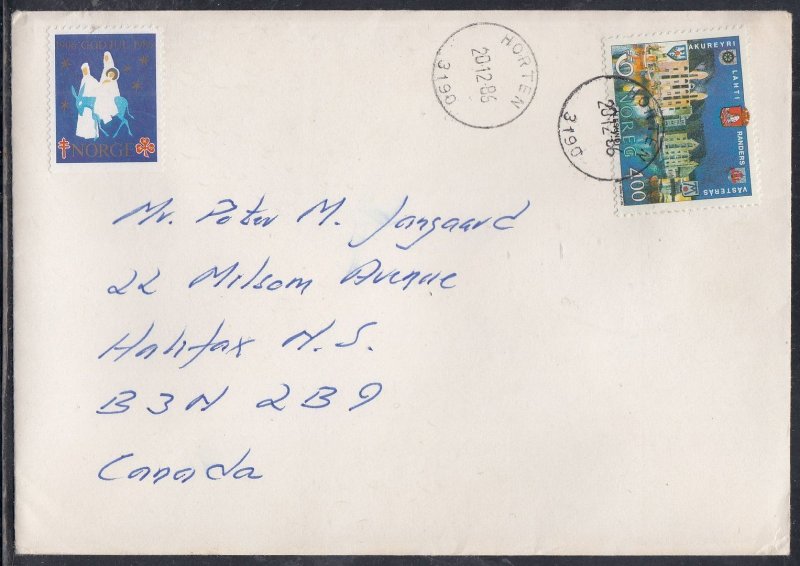 GOD JUL
NORGE
HORTEN
20.12.86
3190
AKUREYRI
LAHTI
RANDERS
VÄSTERÅS
NOREG
400
20.12.86
3190
Mr. Peter M. Jangaard
22 Milsom Avenue
Halifax N.S.
B3N 2B9
Canada